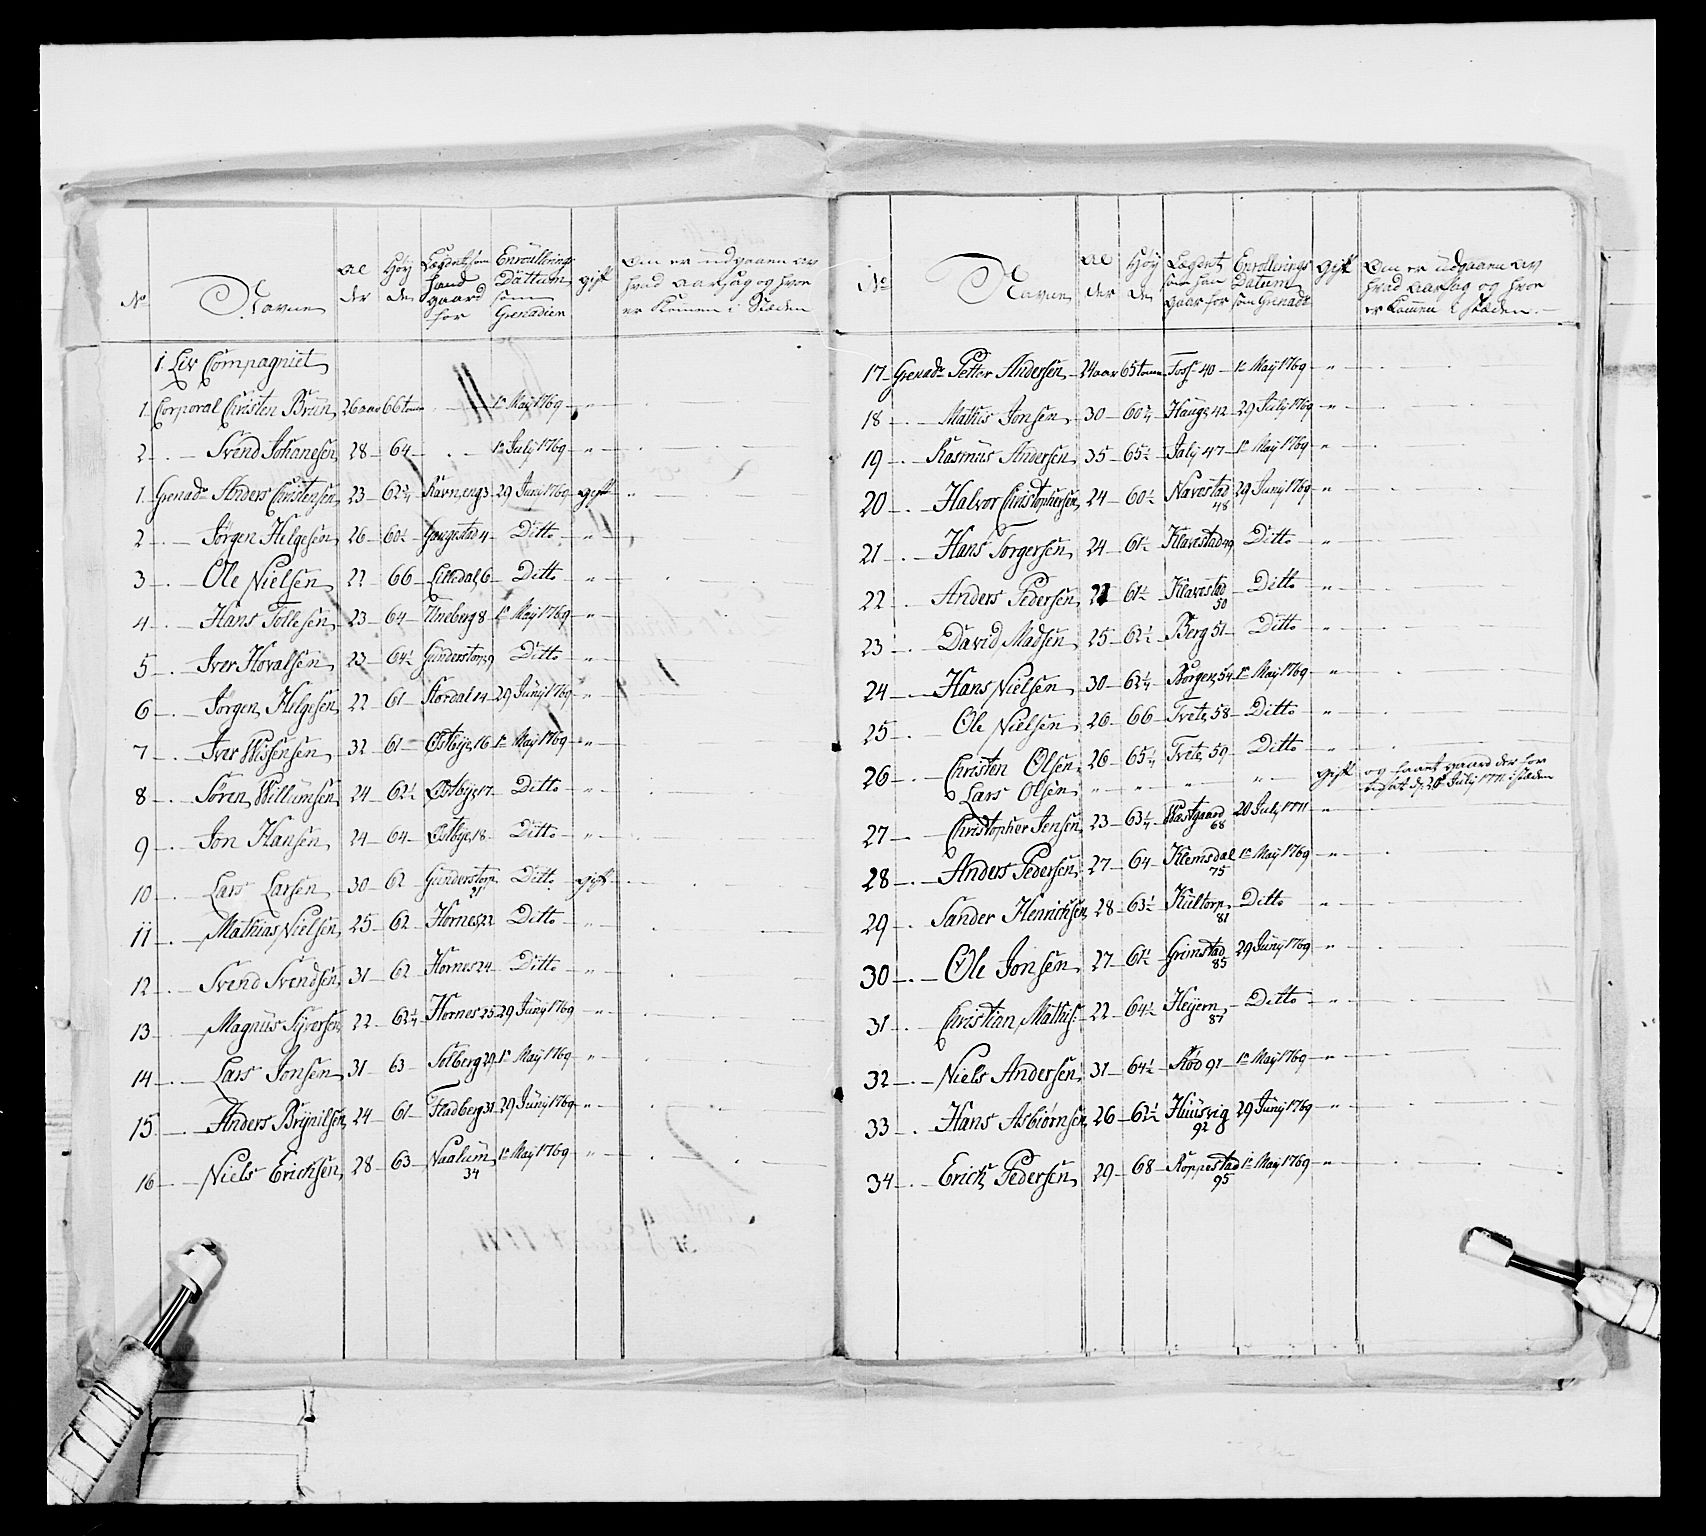 No Navne Al der Høy de Lægdet som hand gaard for Enroullerings Dattum som Grenadeer gift Om er udgaaen av hvad aarsag og hvor er komen i Stæden
1. Liv Compagniet
1 Corporal Christen Brun 26 aar 66 tom 1te May 1769 "
2 Svend Johanesen 28 64 1te July 1769 "
1 Grenadr Anders Christensen 23 62 3/4 Ravneng 3 29 Junÿ 1769 gift "
2 Jørgen Helgesen 26 60 1/2 Haugestad 4 Ditto "
3 Ole Nielsen 22 66 Lilledal 6 Ditto "
4 Hans Tollesen 23 64 Uneberg 8 1te Maÿ 1769 "
5 Iver Hovalsen 23 64 1/2 Gunderstorp 9 Ditto "
6 Jørgen Helgesen 22 61 Stordal 14 29 Junÿ 1769 "
7 Iver Nissensen 32 61 Østbye 16 1te Maÿ 1769 "
8 Søren Willumsen 24 62 1/2 Østbye 17 Ditto "
9 Jon Hansen 24 64 Østbye 18 Ditto "
10 Lars Larsen 30 62 Gunderstorp 21 Ditto gift
11 Mathias Nielsen 25 62 Hornes 22 Ditto "
12 Svend Svendsen 31 62 Hornes 24 Ditto "
13 Magnus Syversen 22 62 1/4 Hornes 25 29 Junÿ 1769 "
14 Lars Jonsen 31 63 Solberg 29 1te Maÿ 1769 "
15 Anders Brynilsen 24 61 Fladberg 31 29 Junÿ 1769 "
16 Niels Erichsen 28 63 Naalum 34 1te Maÿ 1769 "
No Navne Al der Høy de Lægdet som han gaar for Enrollerings Datum som Grenadr gift Om er udgaaen av hvad aarsag og hvor er kommen i stæden
17 Grenadr Petter Andersen 24 aar 65 tomm Foss 40 1te Maÿ 1769 "
18 Mathis Jonsen 30 60 3/4 Hauge 42 29 July 1769 "
19 Rasmus Andersen 35 65 1/2 Jaly 47 1te Maÿ 1769 "
20 Halvor Christophersen 24 60 1/2 Navestad 48 29 Junÿ 1769 "
21 Hans Torgersen 24 61 1/2 Klavestad 49 Ditto "
22 Anders Pedersen 61 1/2 Klavestad 50 Ditto "
23 David Madsen 25 62 1/2 Berg 51 Ditto "
24 Hans Nielsen 30 62 1/4 Borgen 54 1te Maÿ 1769 "
25 Ole Nielsen 26 66 Tvete 58 Ditto "
26 Christen Olsen 26 65 1/4 Tvete 59 Ditto "
Lars Olsen " " " " gift og haart gaard der for
July 1771 i stæden
27 Christopher Jensen 23 63 1/4 Westgaard 68 20 July 1771 "
28 Anders Pedersen 27 64 Klemsdal 75 1te Maÿ 1769 "
29 Sander Henrichsen 28 63 1/2 Kultorp 81 Ditto "
30 Ole Jonsen 27 61 1/2 Grimstad 85 29 Junÿ 1769 "
31 Christian Mathis: 22 64 1/2 Heÿern 87 Ditto "
32 Niels Andersen 31 64 1/2 Rød 91 1te Maÿ 1769 "
33 Hans Asbiørnsen 26 62 1/2 Huusvig 92 29 Junÿ 1769 "
34 Erich Pedersen 29 68 Roppestad 95 1te Maÿ 1769 "